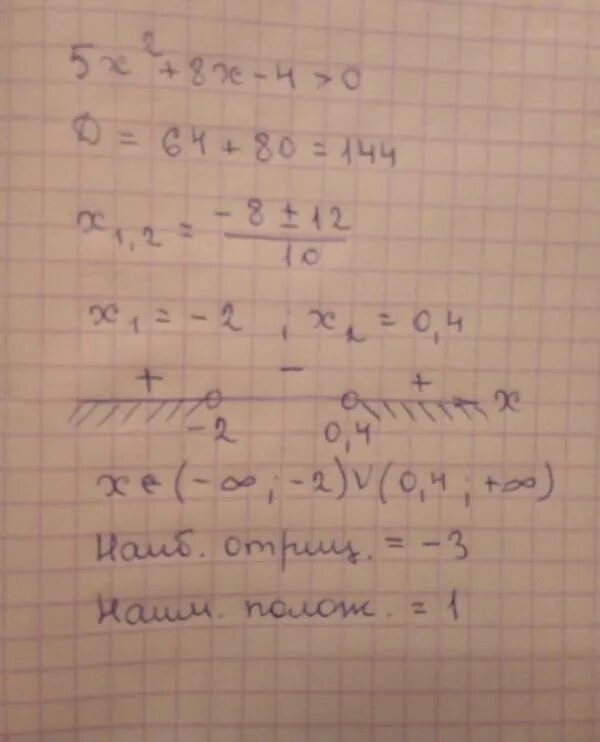 5x² + 8x - 4 > 0
D = 64 + 80 = 144
x₁,₂ = (-8 ± 12)/10
x₁ = -2 ; x₂ = 0,4
+ - + x
-2 0,4
x ∈ (-∞; -2) ∪ (0,4; +∞)
Наиб. отриц. = -3
Наим. полож. = 1